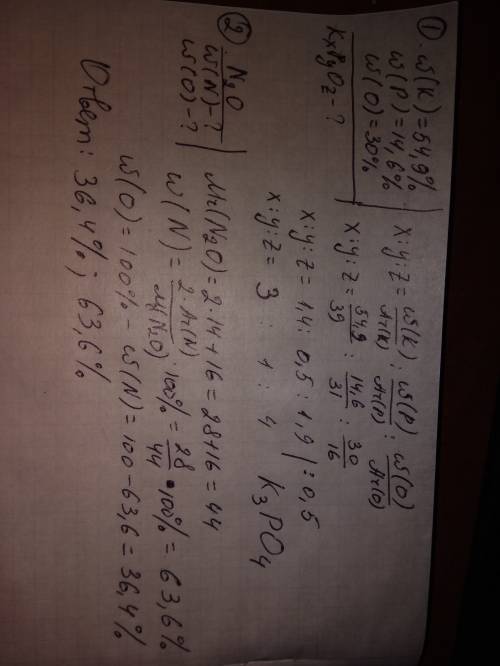 ① w(K)=54,9%
w(P)=14,6%
w(O)=30%
KxPyOz-?
x:y:z = w(K)/Ar(K) : w(P)/Ar(P) : w(O)/Ar(O)
x:y:z = 54,9/39 : 14,6/31 : 30/16
x:y:z = 1,4 : 0,5 : 1,9 | :0,5
x:y:z = 3 : 1 : 4 K₃PO₄
② N₂O
w(N)-?
w(O)-?
Mr(N₂O)=2·14+16=28+16=44
w(N)= 2·Ar(N)/Mr(N₂O) ·100% = 28/44 ·100% = 63,6%
w(O)=100%-w(N)=100-63,6=36,4%
Ответ: 36,4%; 63,6%